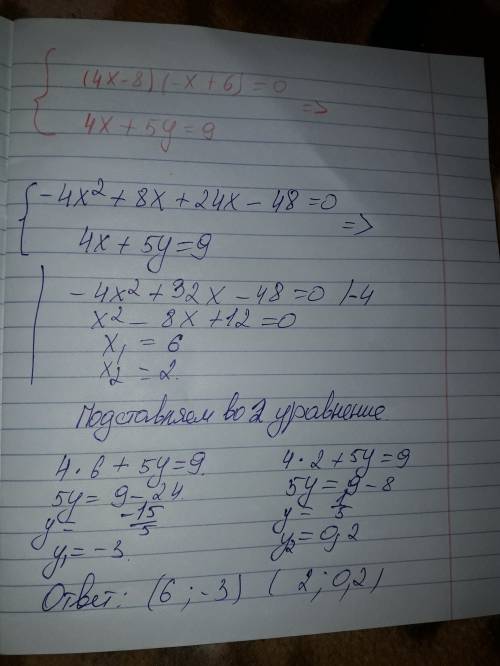 (4x-8)(-x+6)=0
=>
4x+5y=9
-4x²+8x+24x-48=0
=>
4x+5y=9
-4x²+32x-48=0 /-4
x²-8x+12=0
x₁=6
x₂=2.
Подставляем во 2 уравнение
4·6+5y=9.
5y=9-24.
y=-15/5
y₁=-3.
4·2+5y=9
5y=9-8
y=1/5
y₂=0,2
Ответ: (6;-3) (2;0,2)